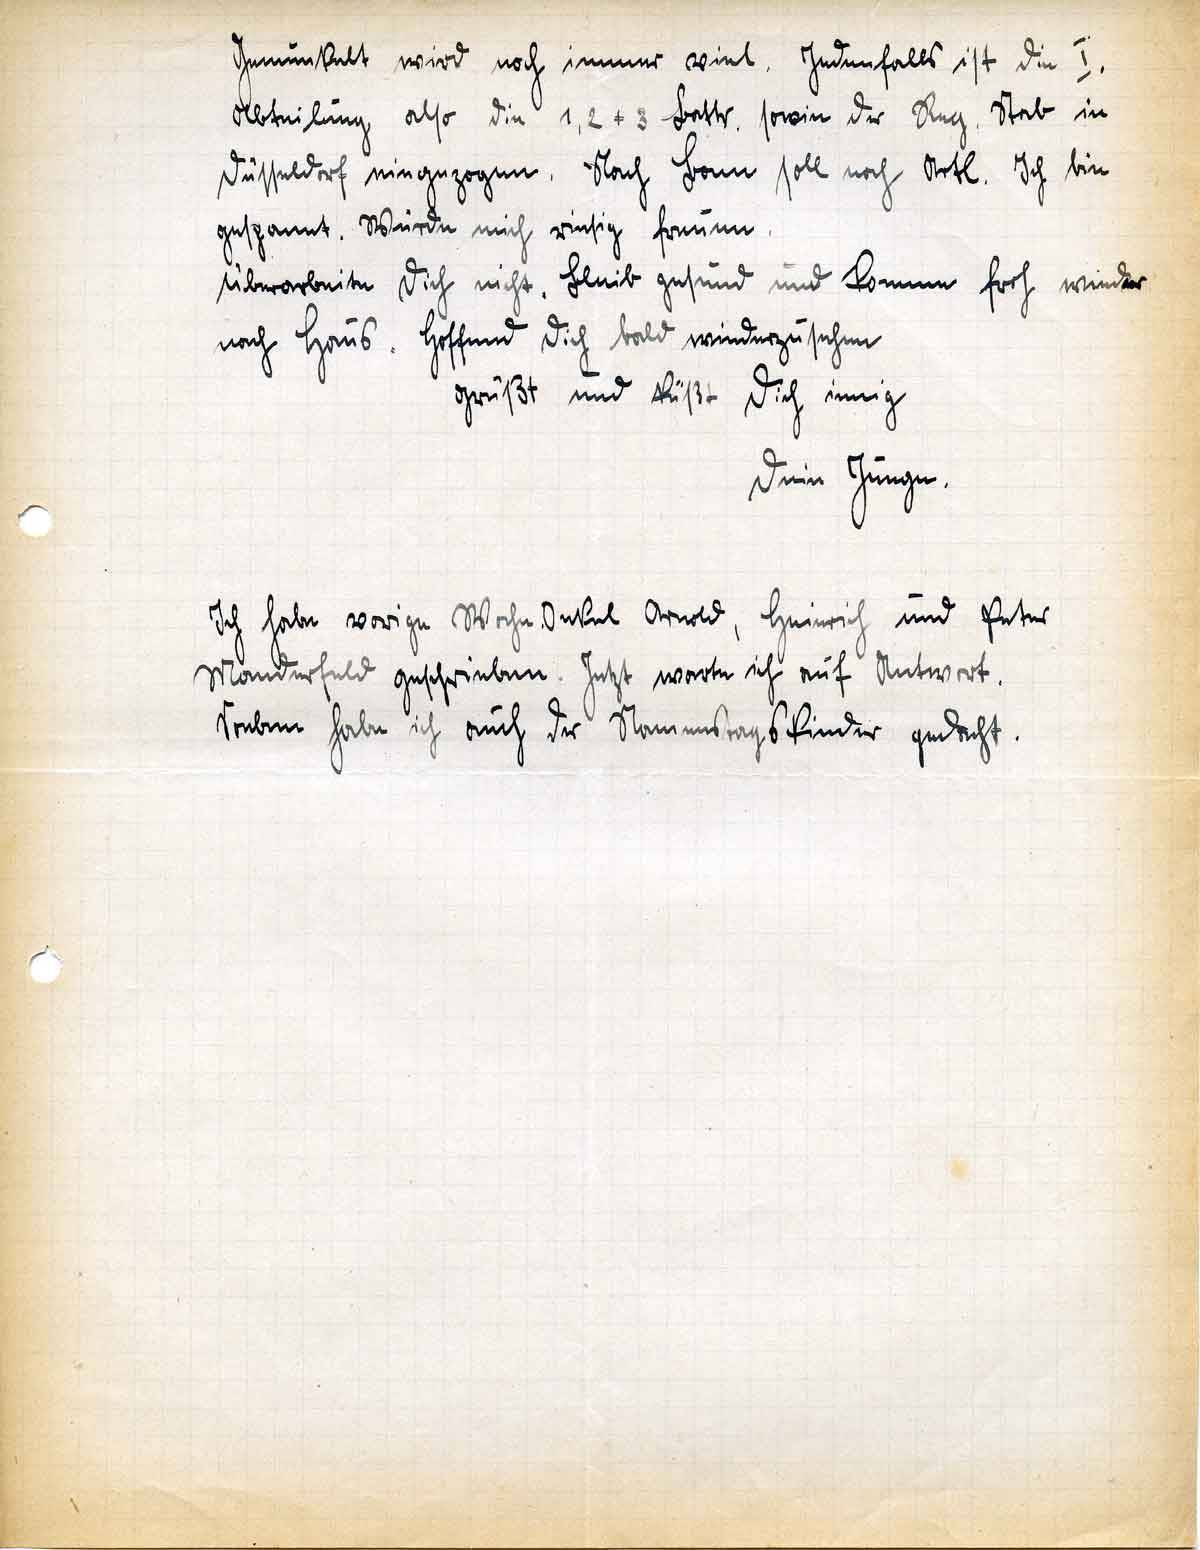 Gemunkelt wird noch immer viel. Jedenfalls ist die I.
Abteilung also die 1, 2 + 3 Battr. sowie der Reg. Stab in
Düsseldorf eingezogen. Nach Bonn soll noch Artl. Ich bin
gespannt. Würde mich riesig freuen.
Überarbeite Dich nicht. Bleib gesund und komme froh wieder
nach Haus. Hoffend Dich bald wiederzusehen
grüßt und küßt Dich innig
Dein Junge.
Ich habe vorige Woche Onkel Arnold, Heinrich und Peter
Manderfeld geschrieben. Jetzt warte ich auf Antwort.
Soeben habe ich auch der Namenstagskinder gedacht.